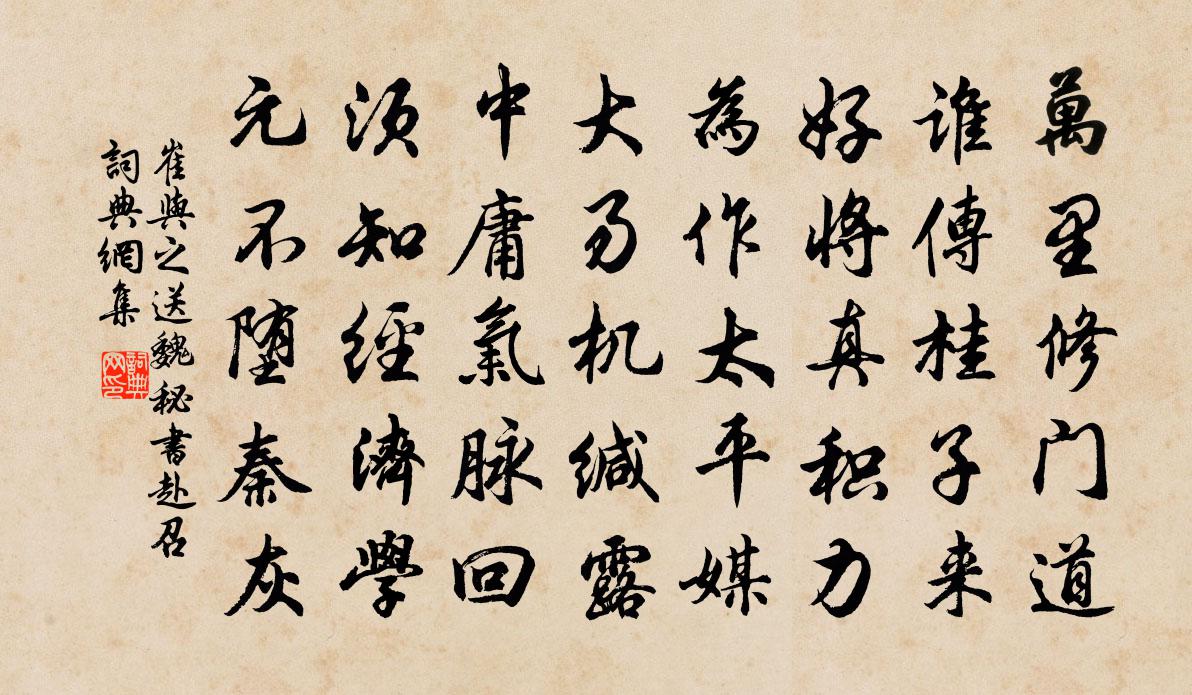 萬里修门道
誰傳桂子来
好將真积力
為作太平媒
大易机缄露
中庸氣脉回
須知經濟學
元不堕秦灰
崔與之送魏秘書赴召
詞典網集
詞典网印